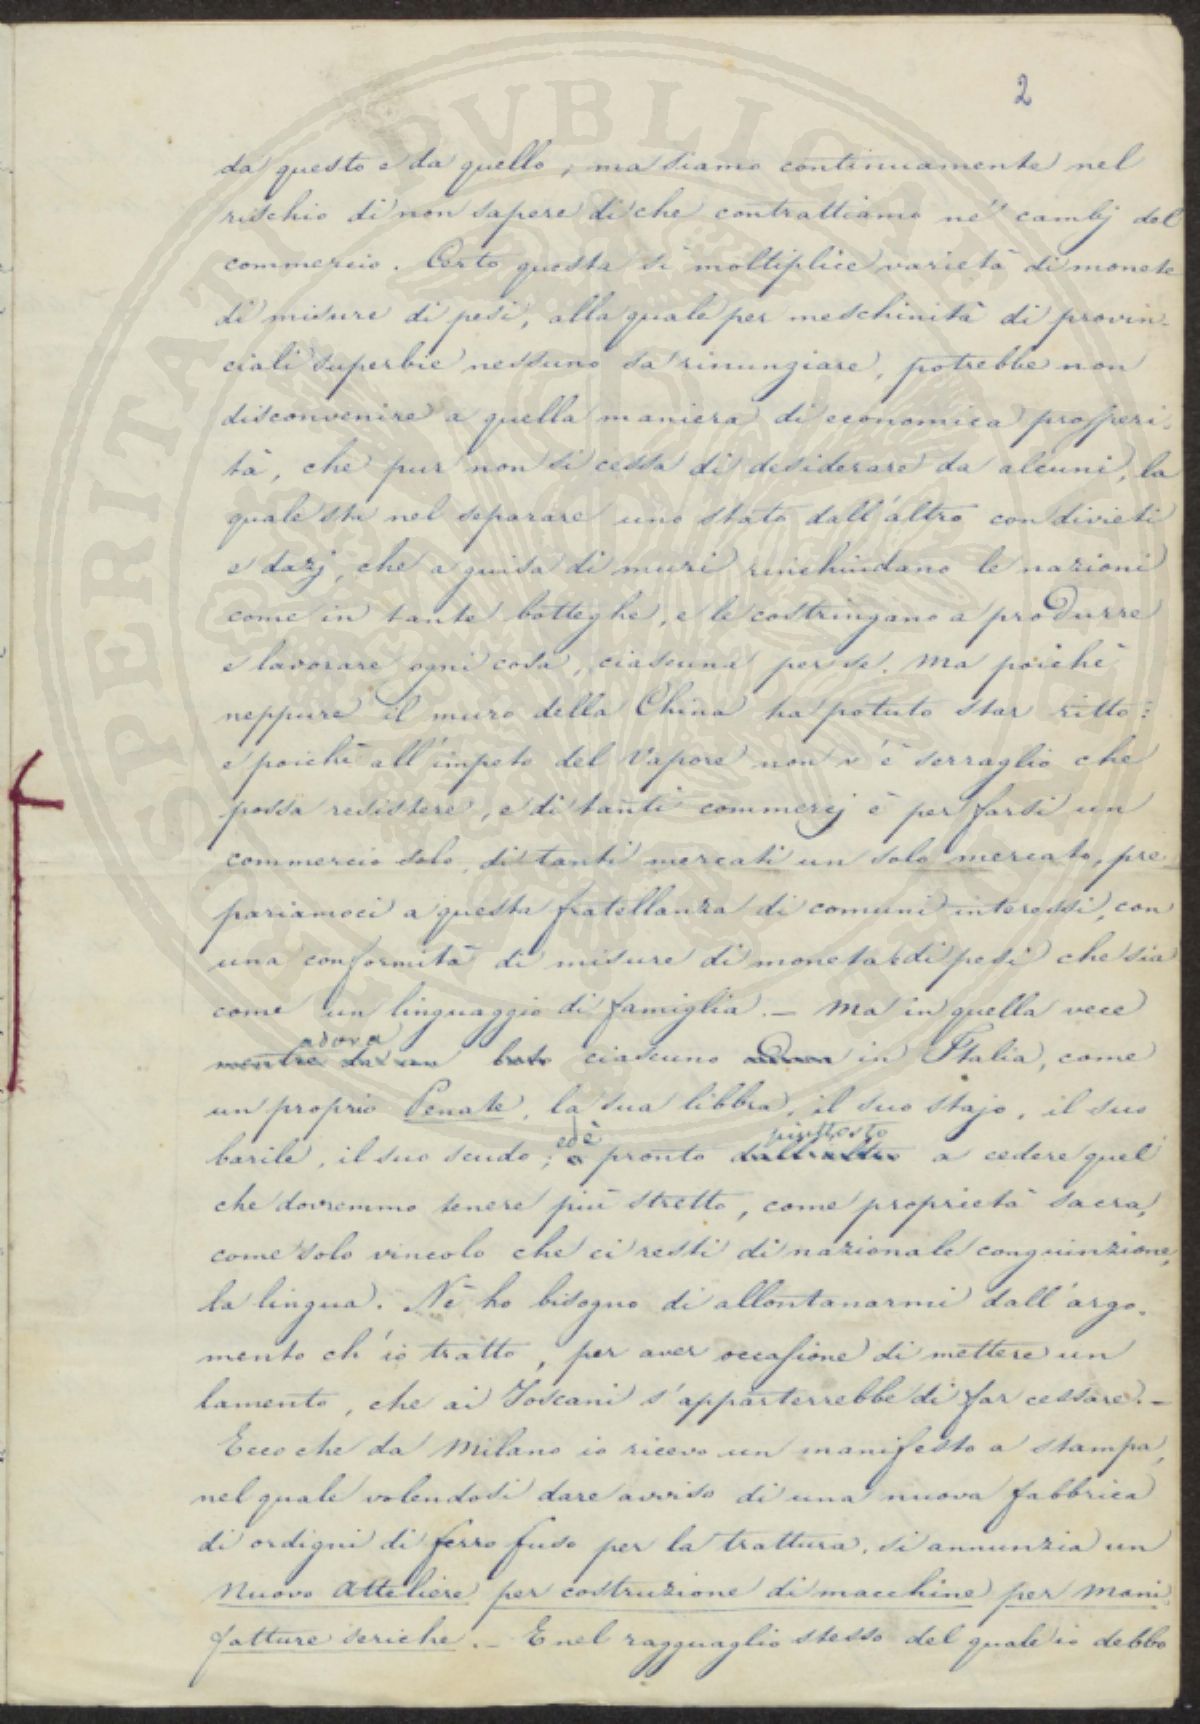 2
da questo e da quello, ma siamo continuamente nel
rischio di non sapere di che contrattiamo ne' cambj del
commercio. Certo questa sì moltiplice varietà di monete
di misure di pesi, alla quale per meschinità di provin-
ciali superbie nessuno sa rinungiare, potrebbe non
disconvenire a quella maniera di economica prosperi-
tà, che pur non si cessa di desiderare da alcuni, la
quale sta nel separare uno stato dall'altro con divieti
e dazj, che a guisa di muri rinchiudano le nazioni
come in tante botteghe, e le costringano a produrre
e lavorare ogni cosa, ciascuna per se. Ma poichè
neppure il muro della China ha potuto star ritto:
e poichè all'impeto del Vapore non v'è serraglio che
possa resistere, e di tanti commercj è per farsi un
commercio solo, di tanti mercati un solo mercato, pre-
pariamoci a questa fratellanza di comuni interessi, con
una conformità di misure di moneta e di pesi che sia
come un linguaggio di famiglia. – Ma in quella vece
adora
mentre da un lato ciascuno adora in Italia, come
un proprio Penate, la sua libbra, il suo stajo, il suo
barile, il suo scudo; ed è pronto piuttosto a cedere quel
che dovremmo tenere più stretto, come proprietà sacra,
come solo vincolo che ci resti di nazionale conguinzione,
la lingua. Nè ho bisogno di allontanarmi dall'argo-
mento ch'io tratto, per aver occasione di mettere un
lamento, che ai Toscani s'apparterrebbe di far cessare. –
Ecco che da Milano io ricevo un manifesto a stampa,
nel quale volendosi dare avviso di una nuova fabbrica
di ordigni di ferro fuso per la trattura, si annunzia un
Nuovo Atteliere per costruzione di macchine per mani-
fatture seriche. – E nel ragguaglio stesso del quale io debbo
SUPERITATI PUBLICAE